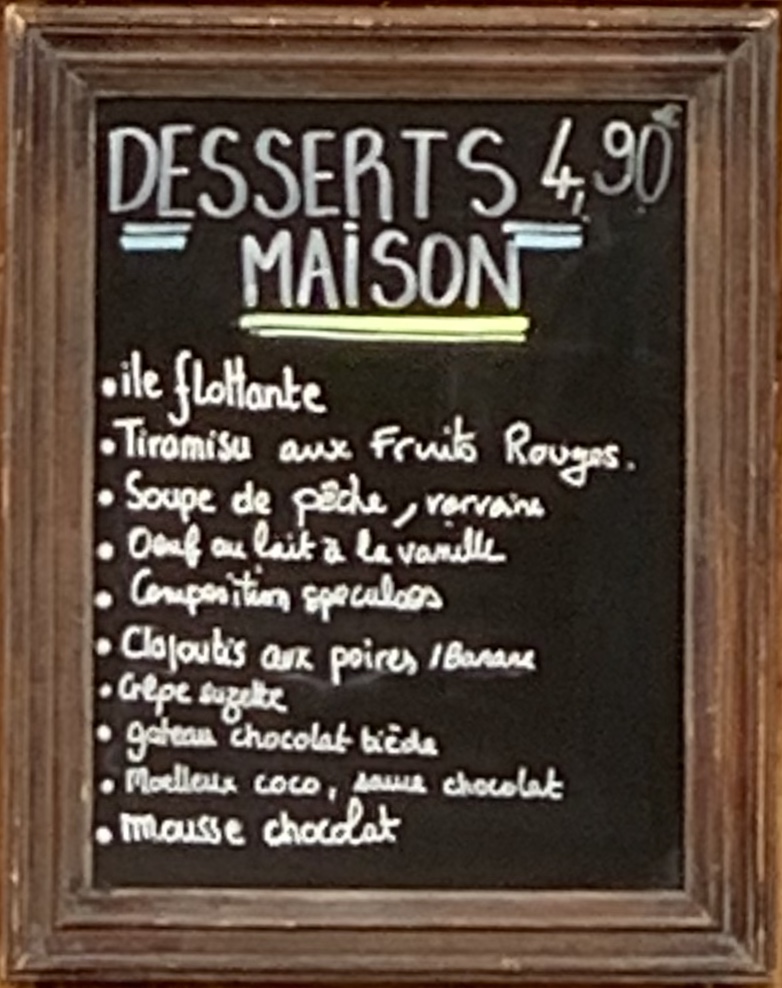 DESSERTS 4,90
MAISON
• ile flottante
• Tiramisu aux Fruits Rouges.
• Soupe de pêche, vervaine
• Oeuf au lait à la vanille
• Composition speculoos
• Clafoutis aux poires / Banane
• Crêpe suzette
• gateau chocolat tiède
• Moelleux coco, sauce chocolat
• mousse chocolat